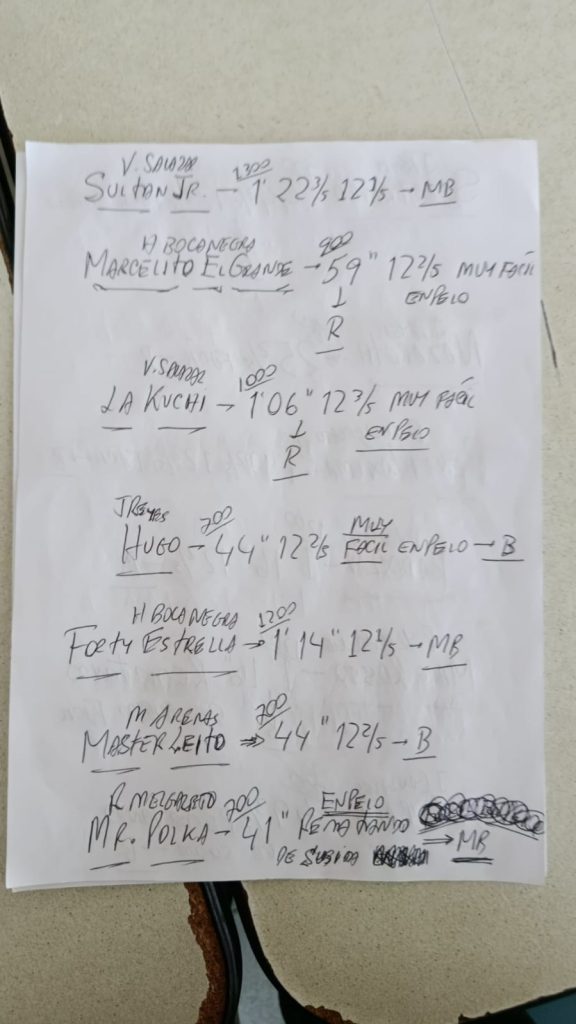 V. SALAZAR 1300
SULTAN JR. → 1' 22 3/5 12 1/5 → MB
H BOCANEGRA 900
MARCELITO EL GRANDE → 59" 12 2/5 MUY FACIL
ENPELO
R
V. SALAZAR 1000
LA KUCHI → 1'06" 12 3/5 MUY FACIL
ENPELO
R
J REYES 700 MUY
HUGO → 44" 12 2/5 FACIL ENPELO → B
H BOCANEGRA 1200
FORTY ESTRELLA → 1' 14" 12 1/5 → MB
M ARENAS 700
MASTER LEITO → 44" 12 2/5 → B
R MELGAREJO 700 ENPELO
MR. POLKA → 41" REMATANDO
DE SUBIDA ⇒ MB